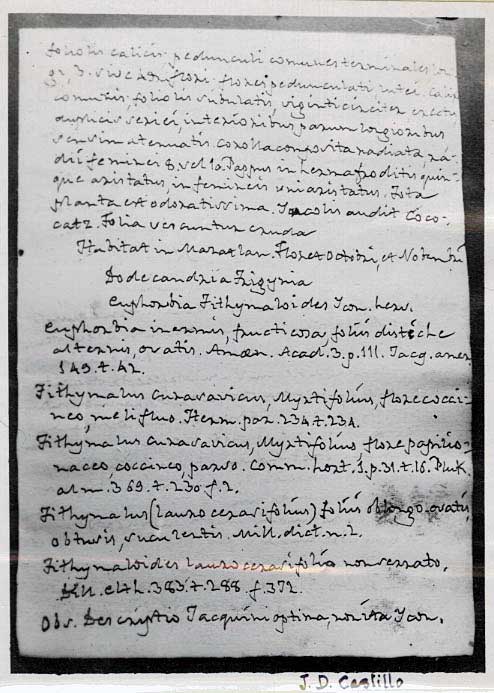 foliolis calicis. pedunculi comunes terminales lon-
gi, 3. sive 4dr. flori. flores pedunculati, lutei. Calix
comunis, foliolis subulatis, viginti circiter, erectis,
duplicis seriei, interioribus parum longioribus
sensim atenuatis. corolla composita radiata, ra-
dii feminei 8. vel 10. Pappus in hermafroditis quin-
que aristatus, in femineis uniaristatus. Tota
planta est odoratissima. Incolis audit Coco-
catz. Folia vescuntur cruda
Habitat in Mazatlan. Floret Octobri, et Nobembri
Dodecandria Trigynia
Euphorbia Tithymaloides Icon. herv.
Euphorbia inermis, fructicosa, foliis distiche
alternis, ovatis. Amæn. Acad. 3. p. 111. Jacq. amer.
149. t. 42.
Tithymalus curasavicus, Myrtifolius, flore cocci-
neo, melifluo. Herm. par. 234. t. 234.
Tithymalus curasavicus, Myrtifolius, flore papilio-
naceo, coccineo, parvo. Comm. hort. 1. p. 31. t. 16. Pluk.
alm. 369. t. 230. f. 2.
Tithymalus (lauro cerasifolius) foliis oblongo-ovatis,
obtusis, suculentis. Mill. dict. n. 2.
Tithymaloides lauro cerasifolio non serrato,
Dill. elth. 383. t. 288. f. 372.
Obs. Descriptio Jacquini optima, non ita Icon.
J. D. Castillo